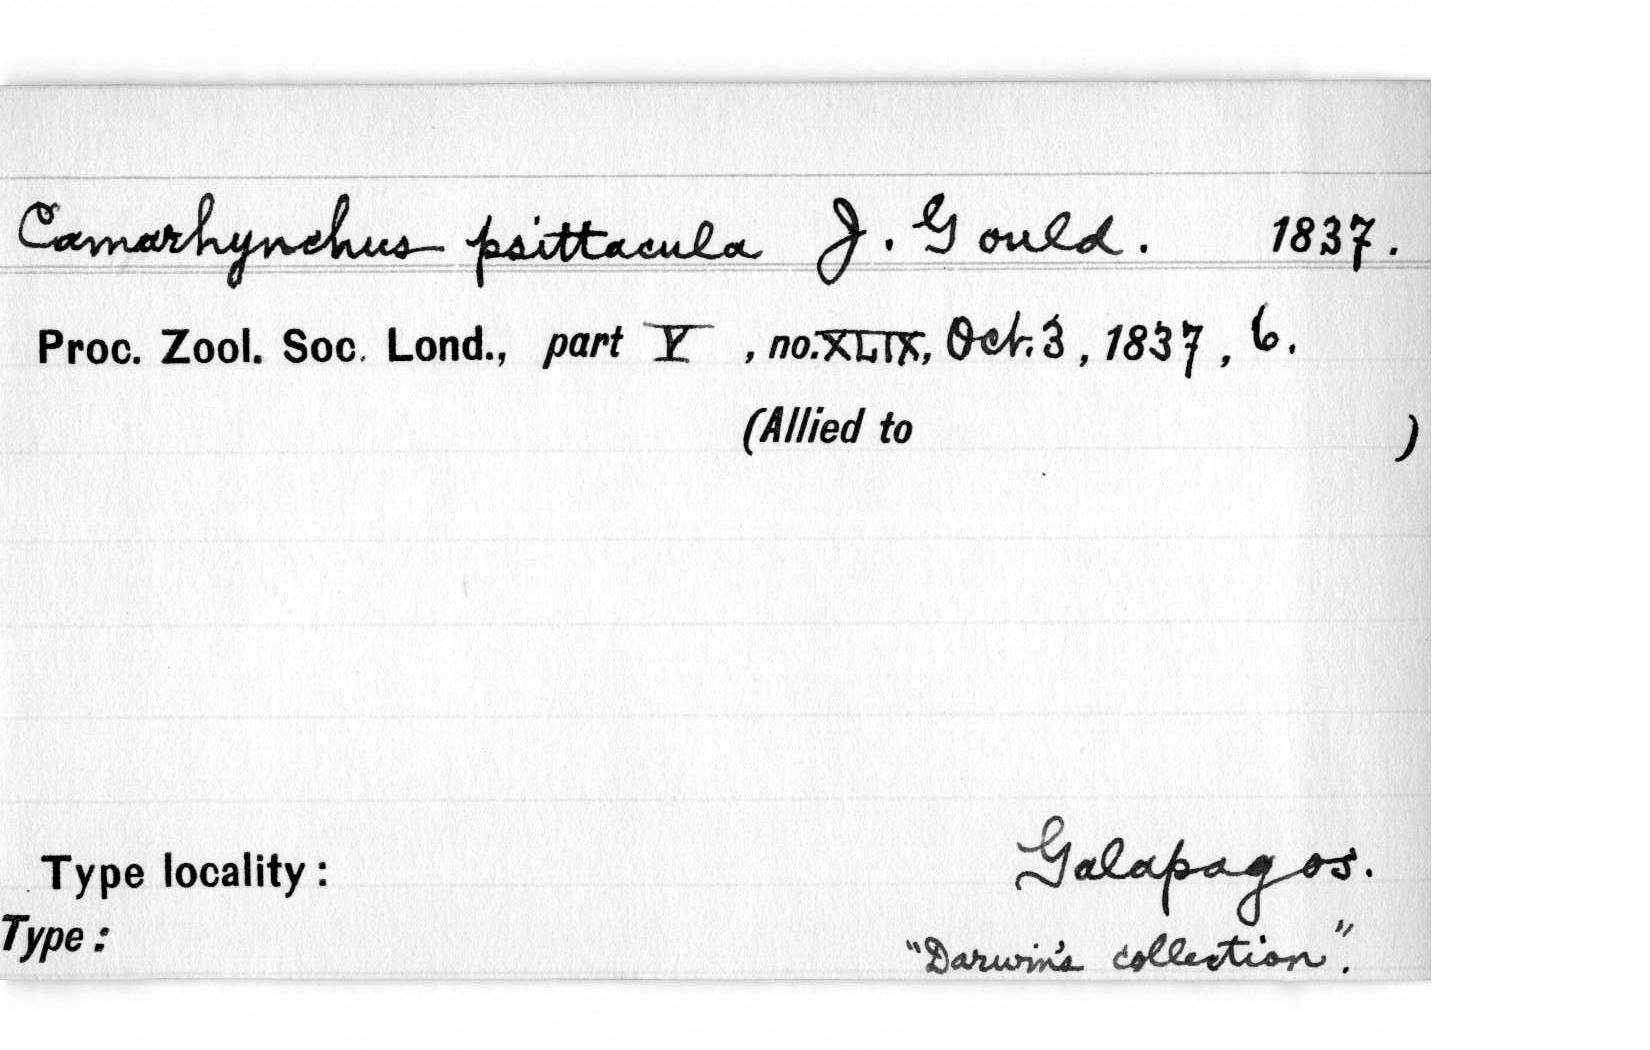 Camarhynchus psittacula J. Gould. 1837.
Proc. Zool. Soc. Lond., part V , no. XLIX, Oct. 3 , 1837 , 6.
(Allied to )
Type locality : Galapagos.
Type : "Darwin's collection".